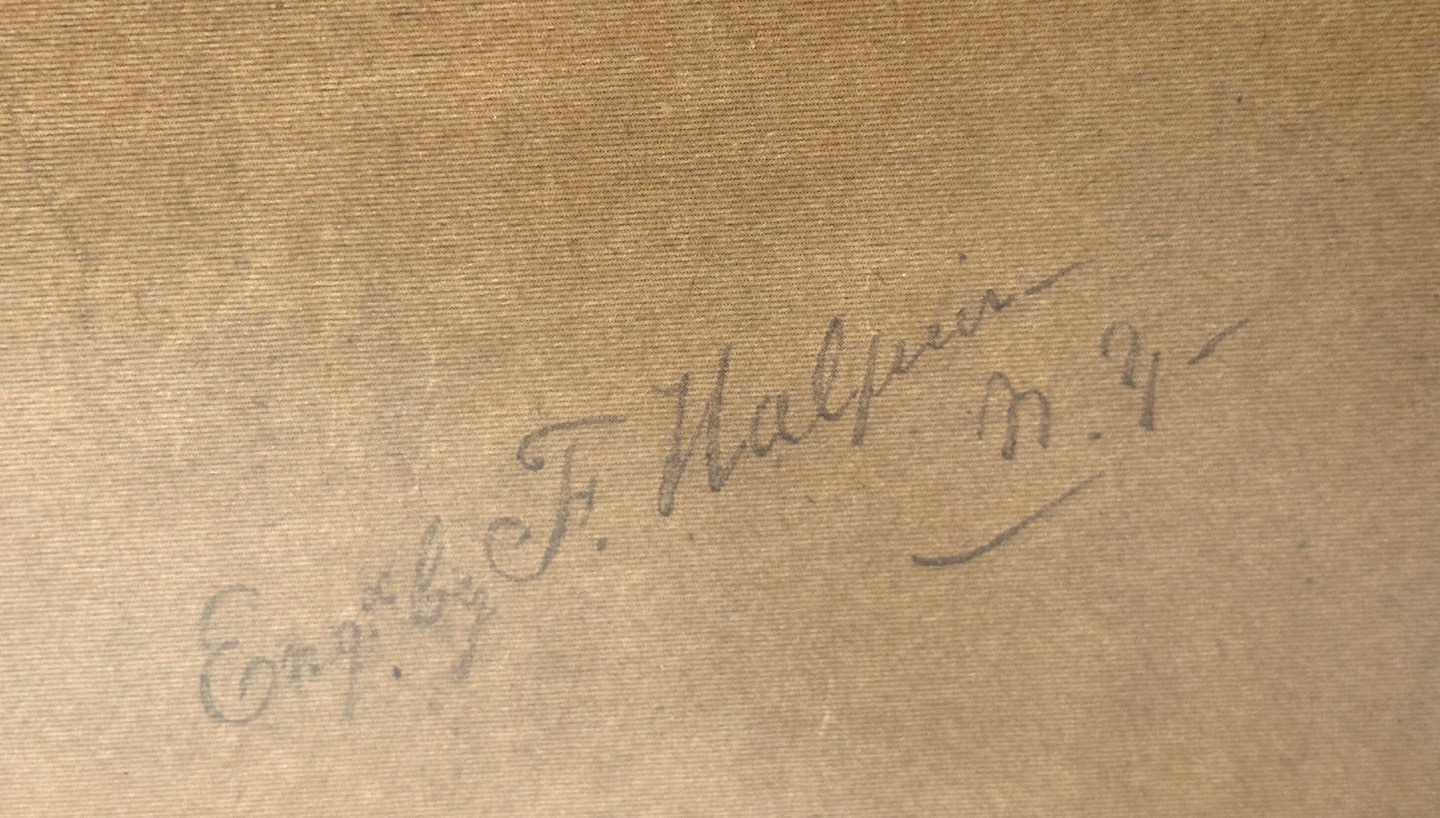 Eng.d by F. Halpin
N.Y